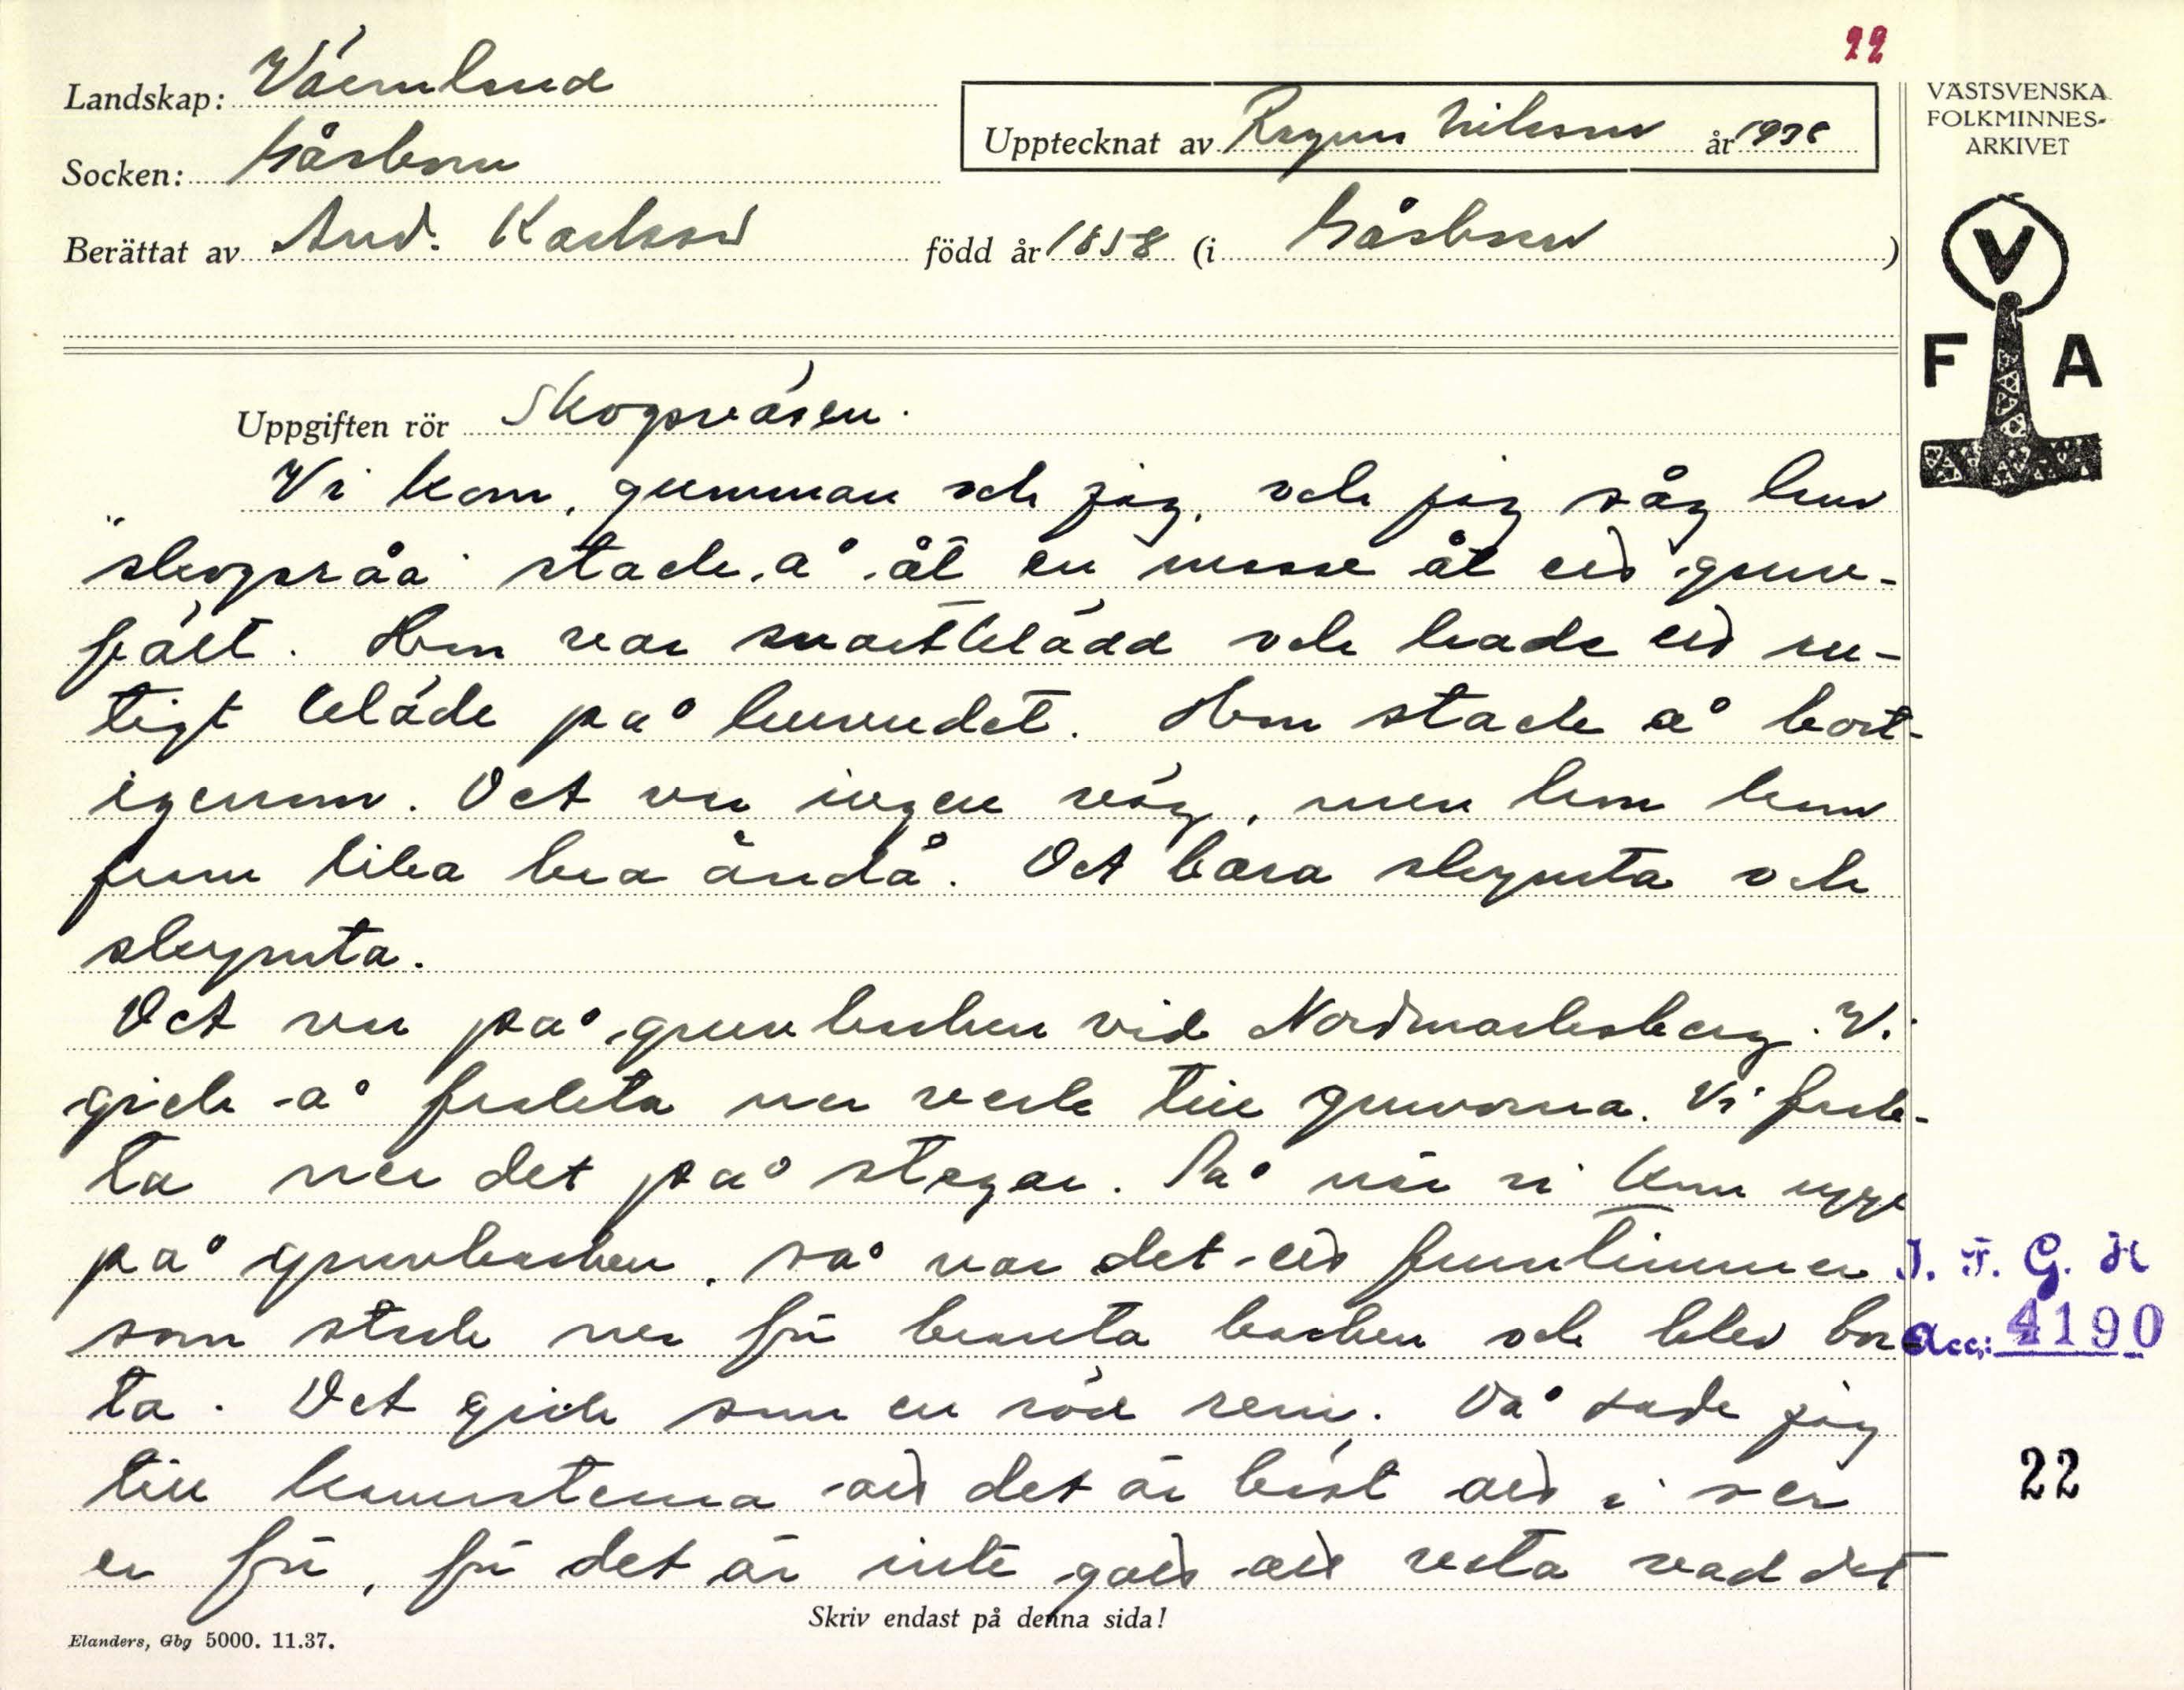 22
Landskap: Värmland
Socken: Gåsborn
Upptecknat av Ragnar Nilsson år 1938
Berättat av And. Karlsson född år 1858 (i Gåsborn)
VÄSTSVENSKA
FOLKMINNES-
ARKIVET
V
F A
Uppgiften rör Skogsväsen.
Vi kom, gumman och jag, och jag såg hur
"skogsråa" stack å åt en mosse åt ett gruv-
fält. Hon var svartklädd och hade ett ru-
tigt kläde på huvudet. Hon stack å bort-
igenom. Det var ingen väg, men hon kom
fram lika bra ändå. Det bara skrynta och
skrynta.
Det var på gruvbacken vid Nordmarksberg. Vi
gick å frakta ner verke till gruvorna. Vi frak-
ta ner det på stegar. Så när vi kom upp
på gruvbacken, så var det ett fruntimmer
som strök ner för branta backen och blev bor-
ta. Det gick som en röd rem. Då sade jag
till kamraterna att det är bäst att i ser
er för, för det är inte gott att veta vad det
I. F. G. H
Acc: 4190
22
Skriv endast på denna sida!
Elanders, Gbg 5000. 11.37.